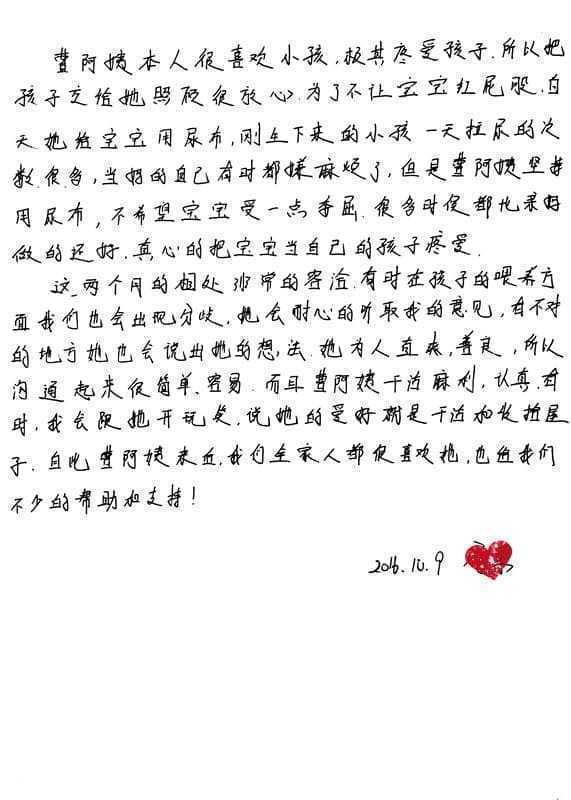 费阿姨本人很喜欢小孩,极其疼爱孩子.所以把
孩子交给她照顾很放心.为了不让宝宝红屁股.白
天她给宝宝用尿布,刚生下来的小孩一天拉尿的次
数很多,当妈的自己有时都嫌麻烦了,但是费阿姨坚持
用尿布,不希望宝宝受一点委屈.很多时候都比亲妈
做的还好.真心的把宝宝当自己的孩子疼爱.
这两个月的相处非常的容洽.有时在孩子的喂养方
面我们也会出现分歧,她会耐心的听取我的意见,有不对
的地方她也会说出她的想法.她为人直爽,善良,所以
沟通起来很简单、容易.而且费阿姨干活麻利,认真.有
时,我会跟她开玩笑,说她的爱好就是干活和收拾屋
子.自从费阿姨来后,我们全家人都很喜欢她,也给我们
不少的帮助和支持!
2016.10.9